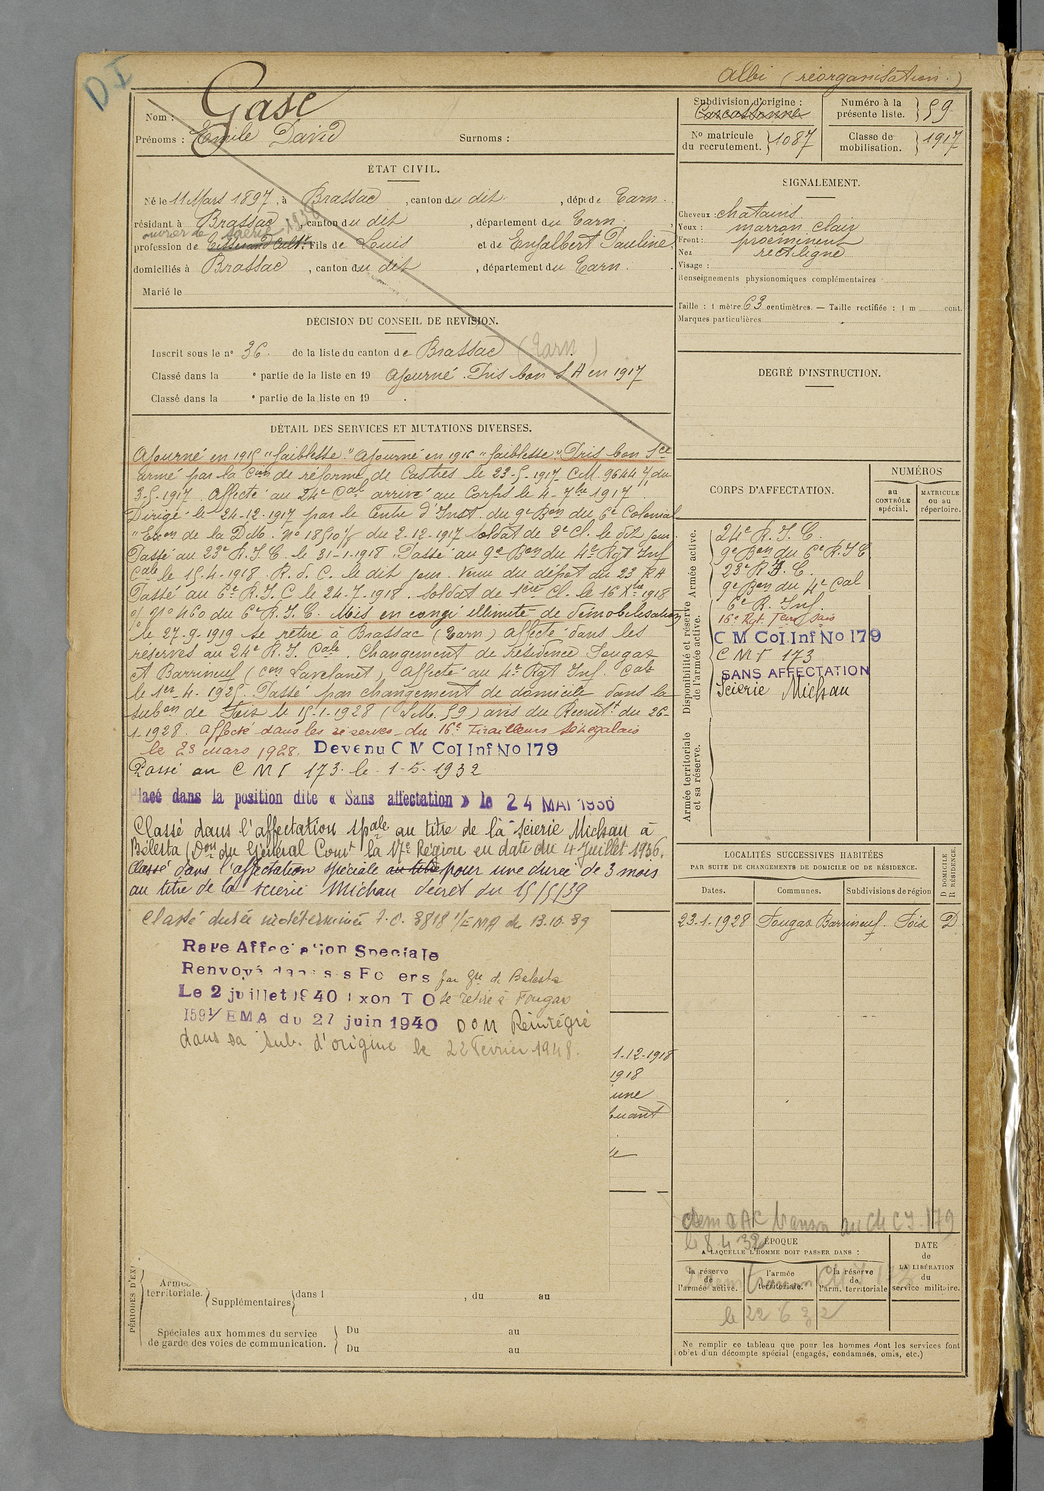 D I
Albi (réorganisation.)
Nom : Gasc
Prénoms : Emile David Surnoms :
Subdivision d'origine : Carcassonne
Numéro à la présente liste. } 59
No matricule du recrutement. } 1087
Classe de mobilisation. } 1917
ÉTAT CIVIL.
Né le 11 Mars 1897, à Brassac, canton du dit, dépt de Tarn.
résidant à Brassac, canton du dit, département du Tarn
ouvrier de scierie 1936
profession de fils de Louis et de Enjalbert Pauline
domiciliés à Brassac, canton du dit, département du Tarn.
Marié le
SIGNALEMENT.
Cheveux : chatains.
Yeux : marron clair
Front : proéminent
Nez rectiligne
Visage :
Renseignements physionomiques complémentaires
Taille : 1 mètre 63 centimètres. — Taille rectifiée : 1 m cent.
Marques particulières
DÉCISION DU CONSEIL DE REVISION.
Inscrit sous le n° 36 de la liste du canton de Brassac (Tarn.)
Classé dans la e partie de la liste en 19 Ajourné. Pris bon S A en 1917
Classé dans la e partie de la liste en 19 .
DEGRÉ D'INSTRUCTION.
DÉTAIL DES SERVICES ET MUTATIONS DIVERSES.
Ajourné en 1915 "faiblesse" Ajourné en 1916 "faiblesse". Pris bon Sce
armé par la Con de réforme de Castres le 23-5-1917 CM. 9644 7 du
3-5-1917. Affecté au 24e Cal arrivé au Corps le 4-7bre 1917
Dirigé le 24-12-1917 par le Centre d'Inst. du 9e Bon du 6e Colonial
Exon de la D.M. n° 18510 1/8 du 2-12-1917 soldat de 2e Cl. le dit jour.
Passé au 23e R.I.C. le 31-1-1918. Passé au 9e Bon du 4e Rgt Inf
Cale le 15-4-1918. R.d.C. le dit jour. Venu du dépôt du 23 R A
Passé au 6e R.I.C le 24-7-1918. Soldat de 1ère Cl. le 16 Xbre 1918
o/ N° 460 du 6e R.I.C. Mis en congé illimité de démobilisation
le 27-9-1919 se retire à Brassac (Tarn) affecté dans les
réserves au 24e R.I. Cale. Changement de résidence Fougax
et Barrineuf (Con Lavelanet), affecté au 4e Rgt Inf. Cale
le 1er-4-1925. Passé par changement de domicile dans la
subon de Foix le 15-1-1928 (S.M. 59) avis du Recrutt du 26-
1-1928. Affecté dans les réserves du 16e Tirailleurs Sénégalais
le 23 mars 1928. Devenu C M Col Inf No 179
Passé au C M I 173 le 1-5-1932
Placé dans la position dite « Sans affectation » le 24 MAI 1936
Classé dans l'affectation spale au titre de la Scierie Michau à
Bélesta (Don du Général Comt la 17e Région en date du 4 Juillet 1936.
Classé dans l'affectation spéciale au titre pour une durée de 3 mois
au titre de la scierie Michau décret du 15/5/39
Classé durée indéterminée I.C. 3818 1/EMA du 13.10.39
Rayé Affectation Spéciale
Renvoyé dans ses Foyers par Gie de Bélesta
Le 2 juillet 1940 Exon T O se retire à Fougax
1591/EMA du 27 juin 1940 DOM Réintégré
dans sa Sub. d'origine le 22 Février 1948.
1-12-1918
1918
une
CORPS D'AFFECTATION.
NUMÉROS
au CONTRÔLE spécial.
MATRICULE ou au répertoire.
Armée active.
24e R.I.C.
9e Bon du 6e R.I.C
23e R.I.C.
9e Bon du 4e Cal
Disponibilité et réserve de l'armée active.
6e R. Inf.
16e Rgt. Tirail.
C M Col Inf No 179
C M I 173
SANS AFFECTATION
Scierie Michau
Armée territoriale et sa réserve.
LOCALITÉS SUCCESSIVES HABITÉES
PAR SUITE DE CHANGEMENTS DE DOMICILE OU DE RÉSIDENCE.
Dates. Communes. Subdivisions de région D DOMICILE R RÉSIDENCE.
23-1-1928 Fougax Barrineuf. Foix D
au CM CI 179
le 8 4 32
ÉPOQUE
A LAQUELLE L'HOMME DOIT PASSER DANS :
la réserve de l'armée active.
l'armée territoriale.
la réserve de l'arm. territoriale
DATE de LA LIBÉRATION du service militaire.
le 22 6 32
PÉRIODES D'EX
Armée territoriale. Supplémentaires dans l , du au
Spéciales aux hommes du service de garde des voies de communication. Du au
Du au
Ne remplir ce tableau que pour les hommes dont les services font
objet d'un décompte spécial (engagés, condamnés, omis, etc.)